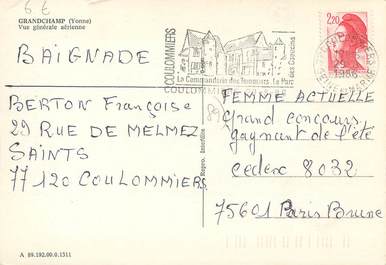 6 €
GRANDCHAMP (Yonne)
Vue générale aérienne
BAIGNADE
COULOMMIERS
La Commanderie des Templiers. Le Parc
des Capucins
COULOMMIERS
2,20
1986
BERTON Françoise
29 RUE DE MELMEZ
SAINTS
77120 COULOMMIERS
Repro. Interdite
FEMME ACTUELLE
Grand concours
gagnant de l'été
cedex 8032
75601 Paris Brune
A 89.192.00.0.1511